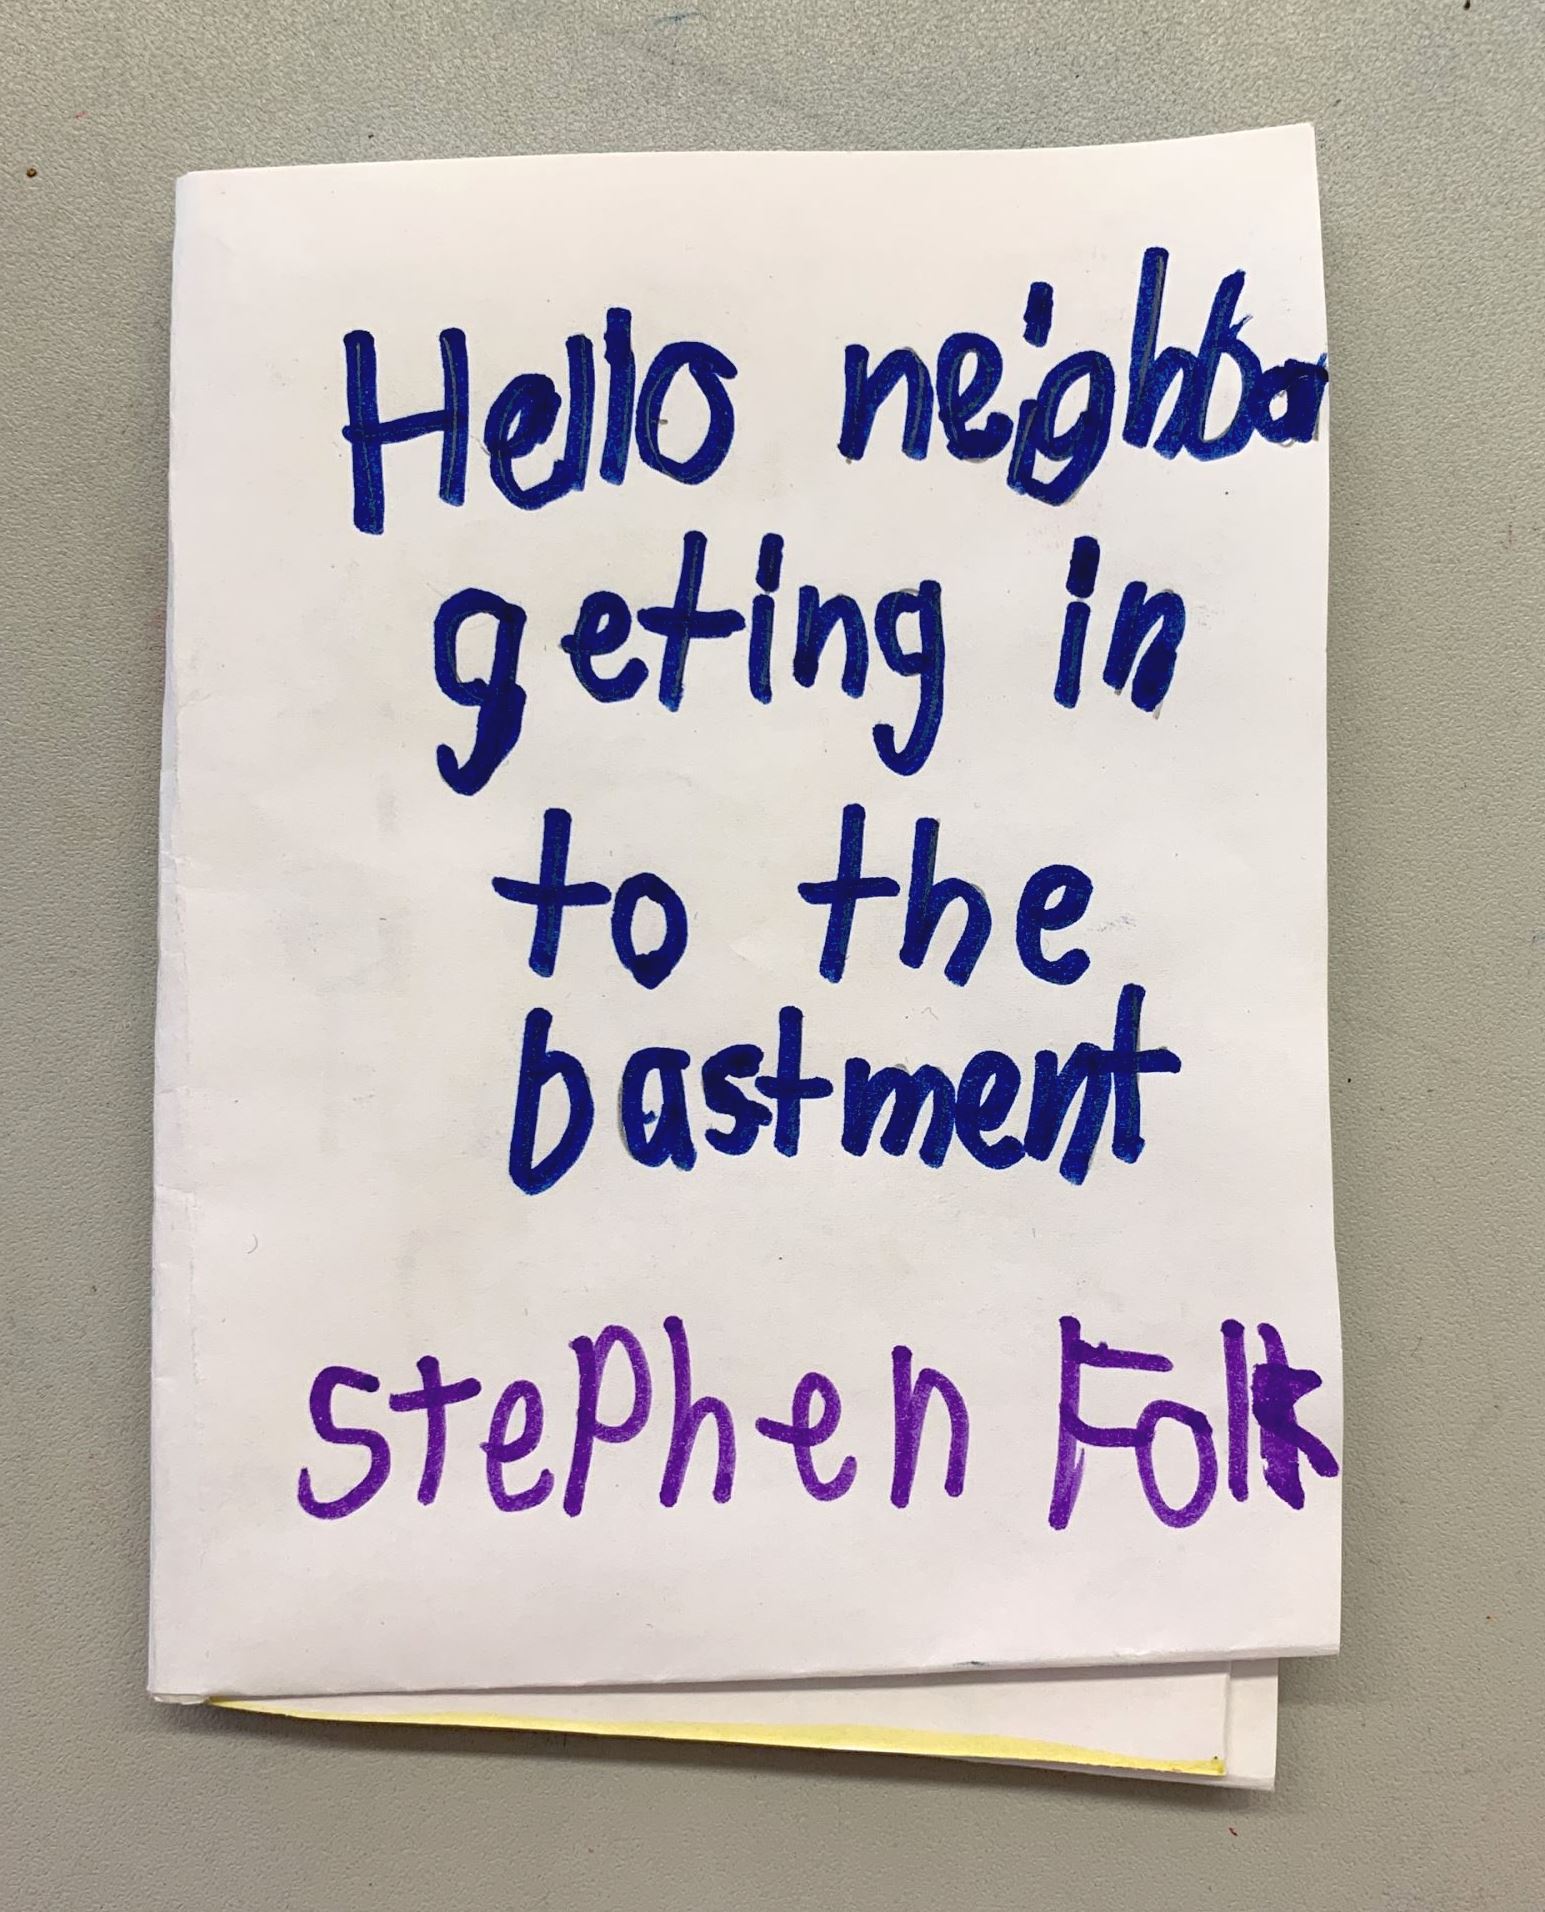 Hello neighbor
geting in
to the
bastment
Stephen Folk